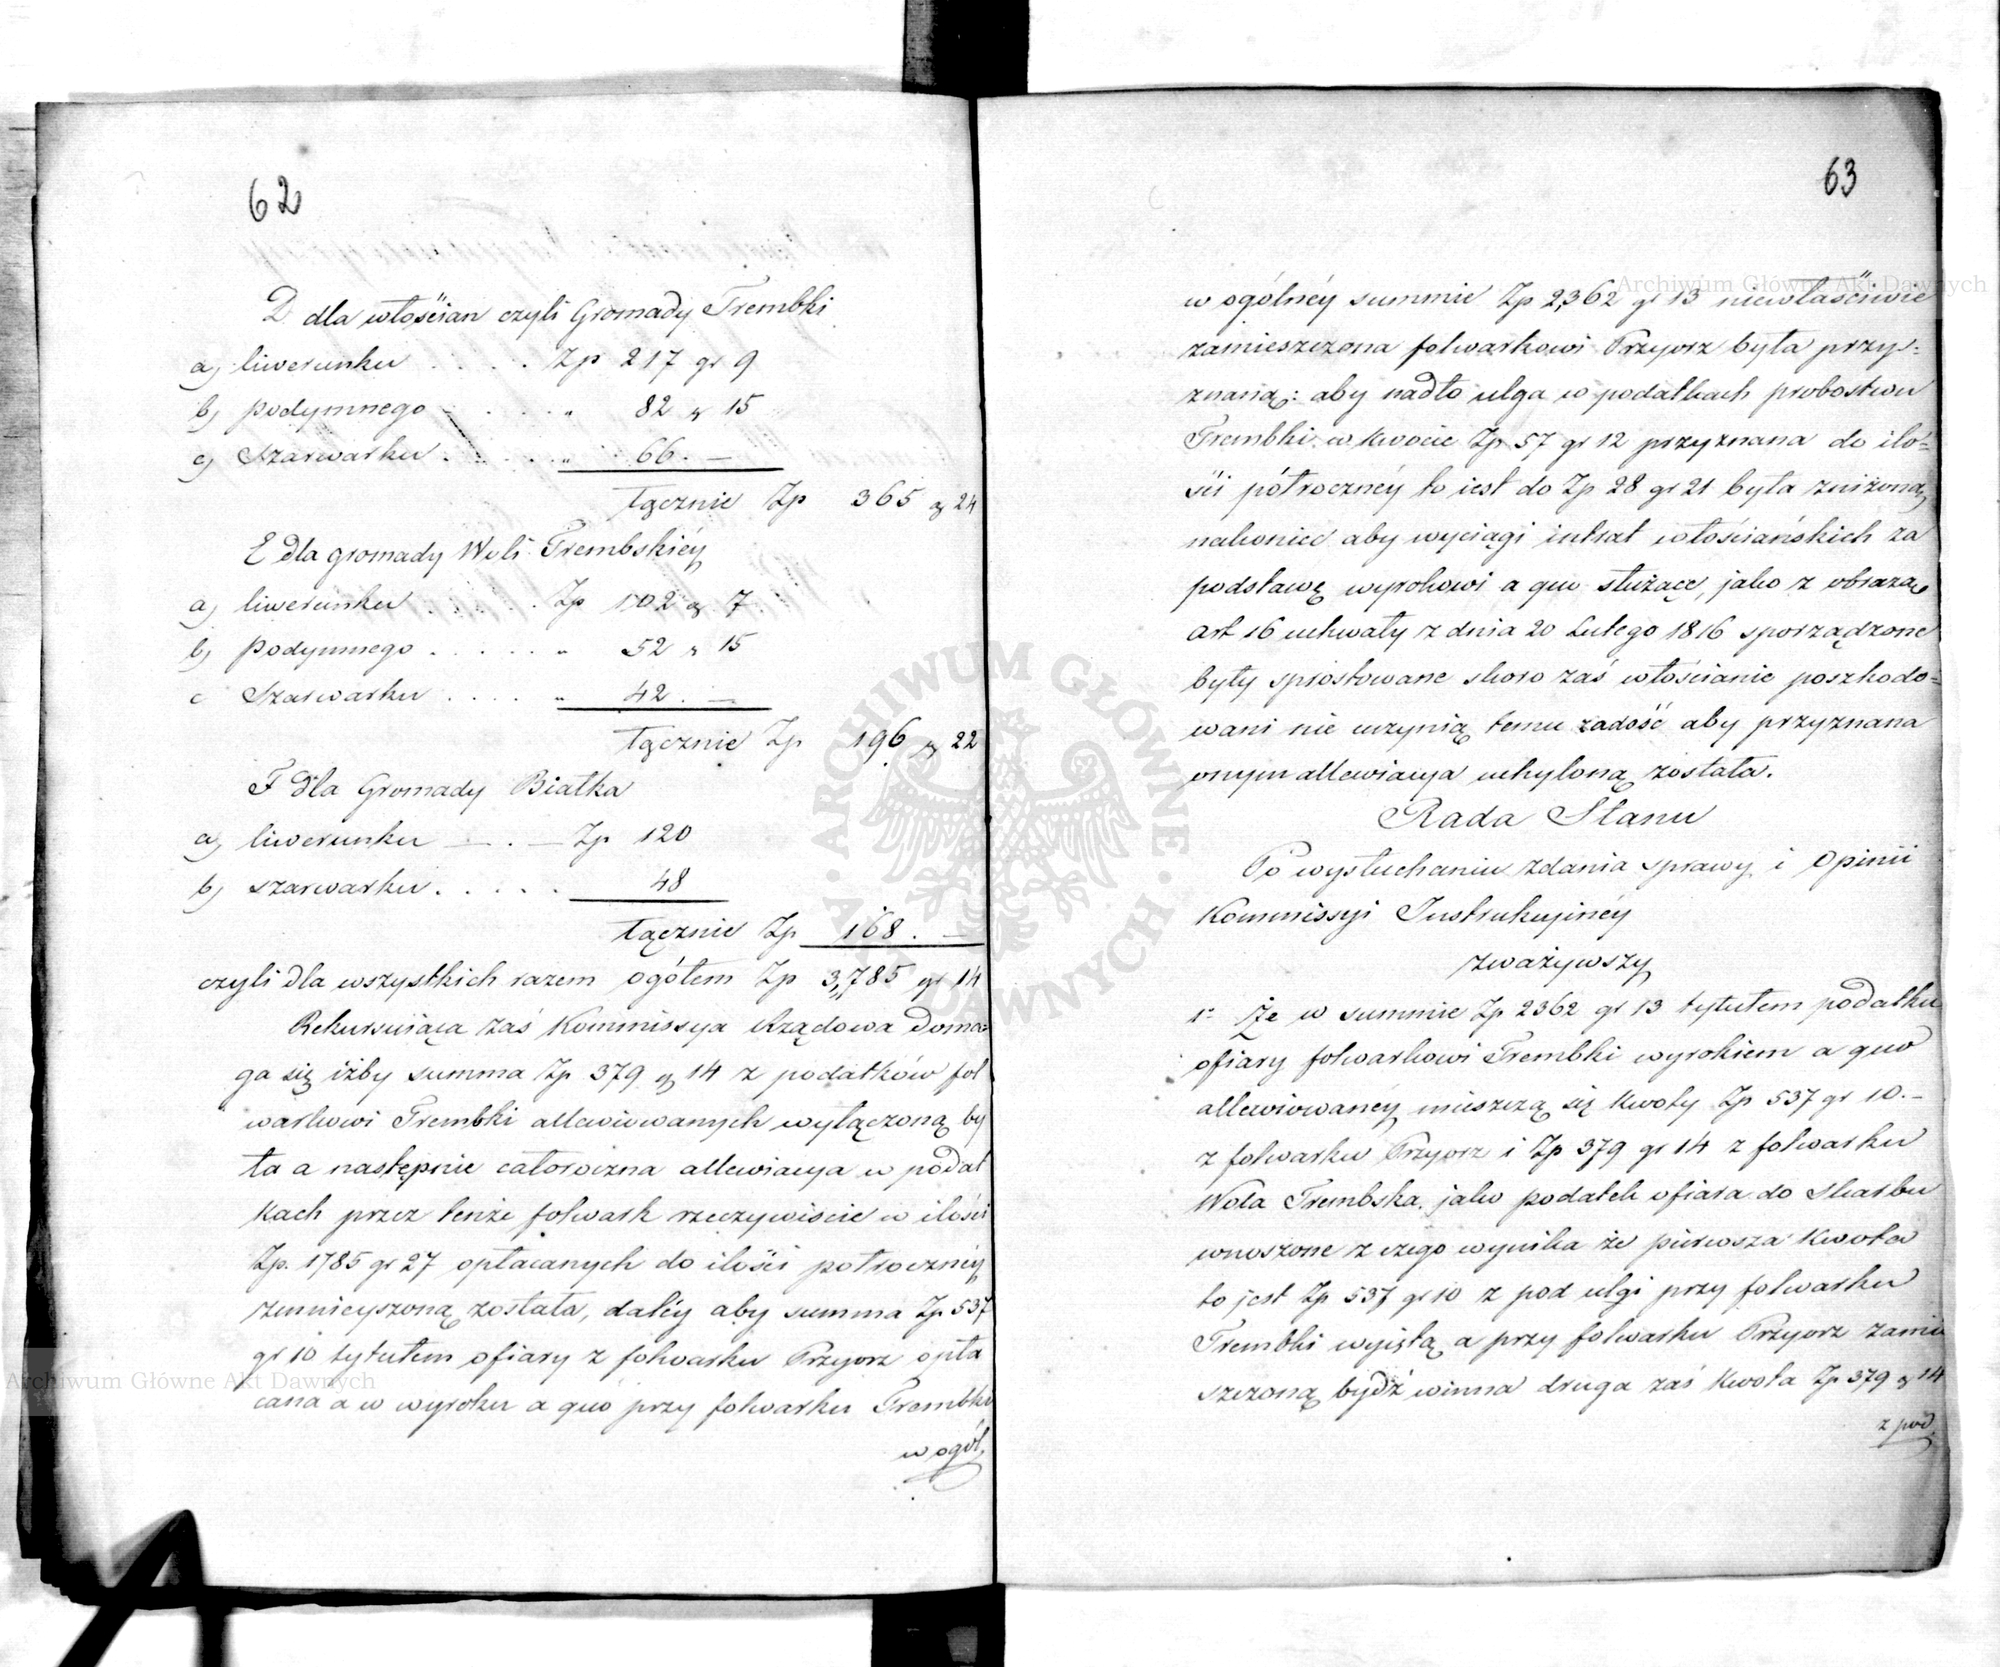 62
D. dla włościan czyli Gromady Trembki
a) liwerunku . . . . Zp 217 gr 9
b) podymnego - . . . . " 82 gr 15
c) Szarwarku . . . . " 66. —
łącznie Zp 365 gr 24
E dla gromady Woli Trembskiéy
a) liwerunku . . . . Zp 102 gr 7
b) Podymnego . . . . . " 52 " 15
c Szarwarku . . . . " 42 . —
łącznie Zp 196 gr 22
F dla Gromady Białka
a) liwerunku — . — Zp 120
b) szarwarku . . . . . 48
łącznie Zp 168. —
czyli dla wszystkich razem ogółem Zp 3,785 gr 14
Rekursuiąca zaś Kommissya Rządowa doma=
ga się iżby summa Zp 379 gr 14 z podatków fol
warkowi Trembki allewiowanych wyłączoną by
ła a następnie całoroczna allewiacya w podat
kach przez tenże folwark rzeczywiscie w ilości
Zp. 1785 gr 27 opłacanych do ilości połrocznéy
zmnieyszoną została, daléy aby summa Zp 537
gr 10 tytułem ofiary z folwarku Przyorz opła
cana a w wyroku a quo przy folwarku Trembki
w ogól,
63
w ogólnéy summie Zp 2,362 gr 13 niewłaściwie
zamieszczona folwarkowi Przyorz była przy=
znaną: aby nadto ulga w podatkach probostwu
Trembki w kwocie Zp 57 gr 12 przyznana do ilo=
ści półrocznéy to iest do Zp 28 gr 21 była zniżoną,
nakoniec aby wyciągi intrat włościańskich za
podstawę wyrokowi a quo służące, jako z obrazą
art 16 uchwały z dnia 20 Lutego 1816 sporządzone
były sprostowane skoro zaś włościanie poszkodo=
wani nie uczynią temu zadość aby przyznana
onym allewiacya uchyloną została.
Rada Stanu
Po wysłuchaniu zdania sprawy i Opinii
Kommissyi Instrukcyinéy
zważywszy
1° Że w summie Zp 2362 gr 13 tytułem podatku
ofiary folwarkowi Trembki wyrokiem a quo
allewiowanéy mieszczą się kwoty Zp 537 gr 10.—
z folwarku Przyorz i Zp 379 gr 14 z folwarku
Wola Trembska, jako podatek ofiara do skarbu
wnoszone z czego wynika że pierwsza kwota
to jest Zp 537 gr 10 z pod ulgi przy folwarku
Trembki wyiętą a przy folwarku Przyorz zamie
szczoną bydź winna druga zaś kwota Zp 379 gr 14
z pod
Archiwum Główne Akt Dawnych
Archiwum Główne Akt Dawnych
ARCHIWUM GŁÓWNE AKT DAWNYCH